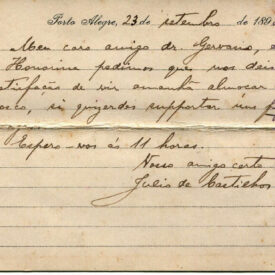 Porto Alegre, 23 de setembro de 189
Meu caro amigo dr. Gervasio, e
Honorina pedimos que nos deis
satisfação de vir amanhã almoçar
osco, si quizerdes supportar um
Espero-vos ás 11 horas.
Vosso amigo certo
Julio de Castilhos